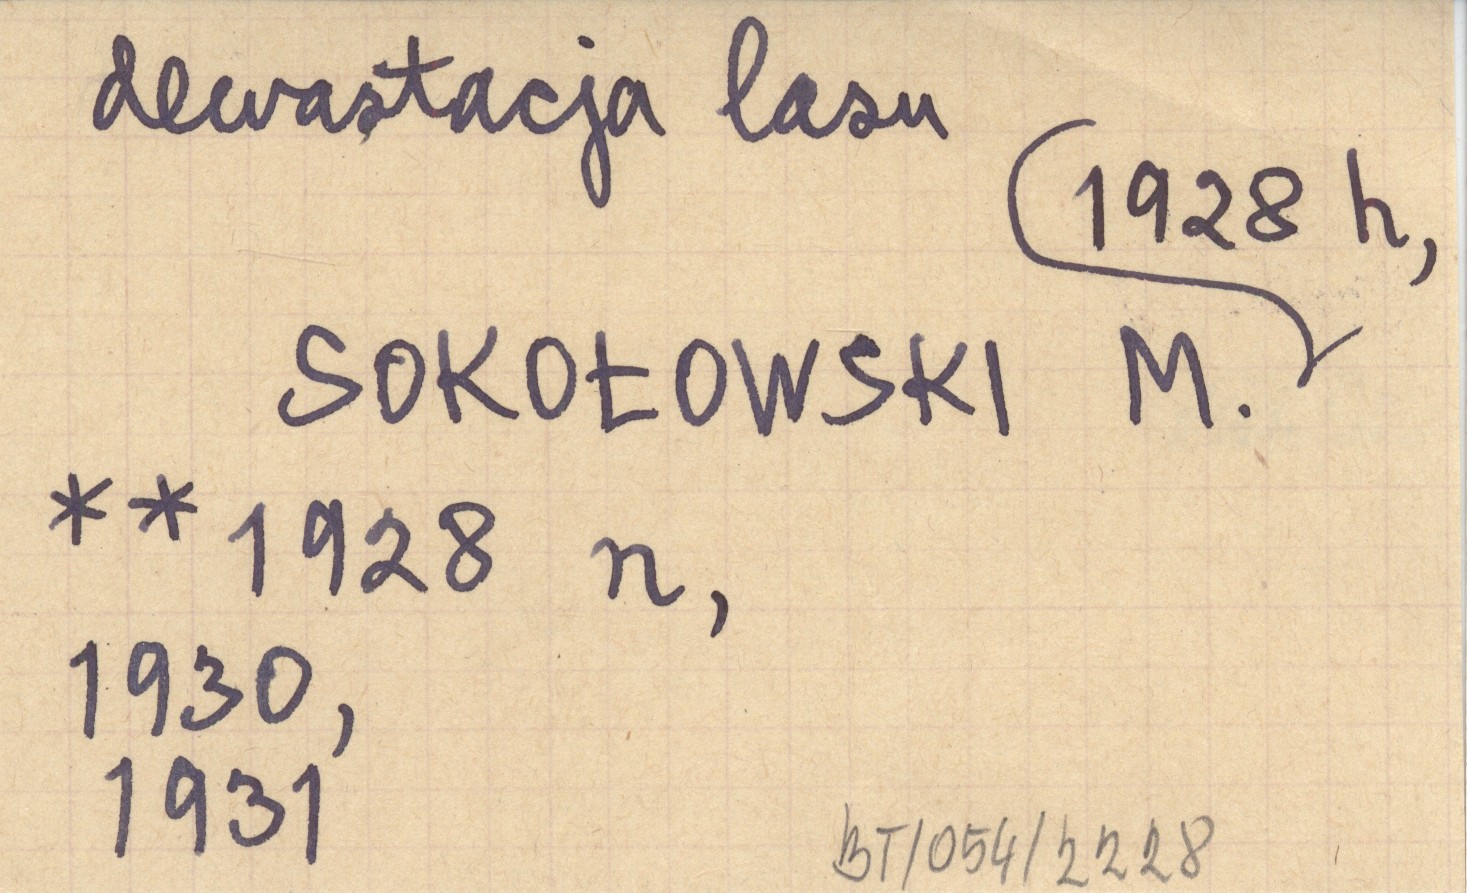 dewastacja lasu
1928 h,
SOKOŁOWSKI M.
**1928 n,
1930,
1931
BT/054/2228